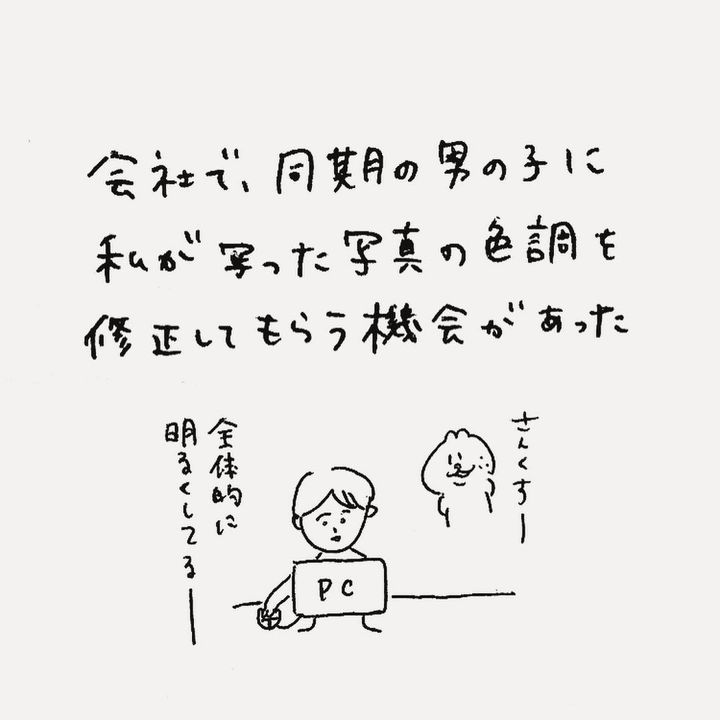 会社で、同期の男の子に
私が写った写真の色調を
修正してもらう機会があった
さんくすー
全体的に
明るくしてるー
PC